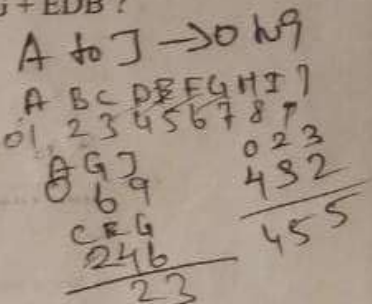 + EDB ?
A to J → 0 to 9
A B C D E F G H I J
0 1 2 3 4 5 6 7 8 9
A G J
0 6 9
C E G
246
23
0 2 3
4 3 2
455